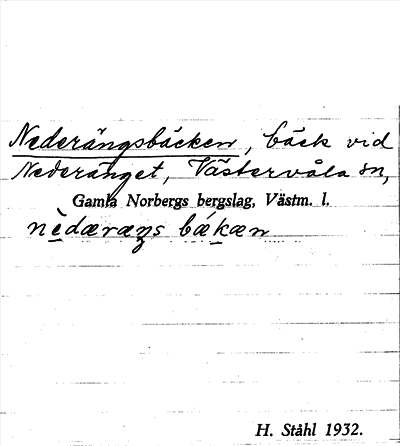 Nederängsbäcken, bäck vid
Nederänget, Västervåla sn,
Gamla Norbergs bergslag, Västm. l.
nèdæræŋs bǽkæn
H. Ståhl 1932.